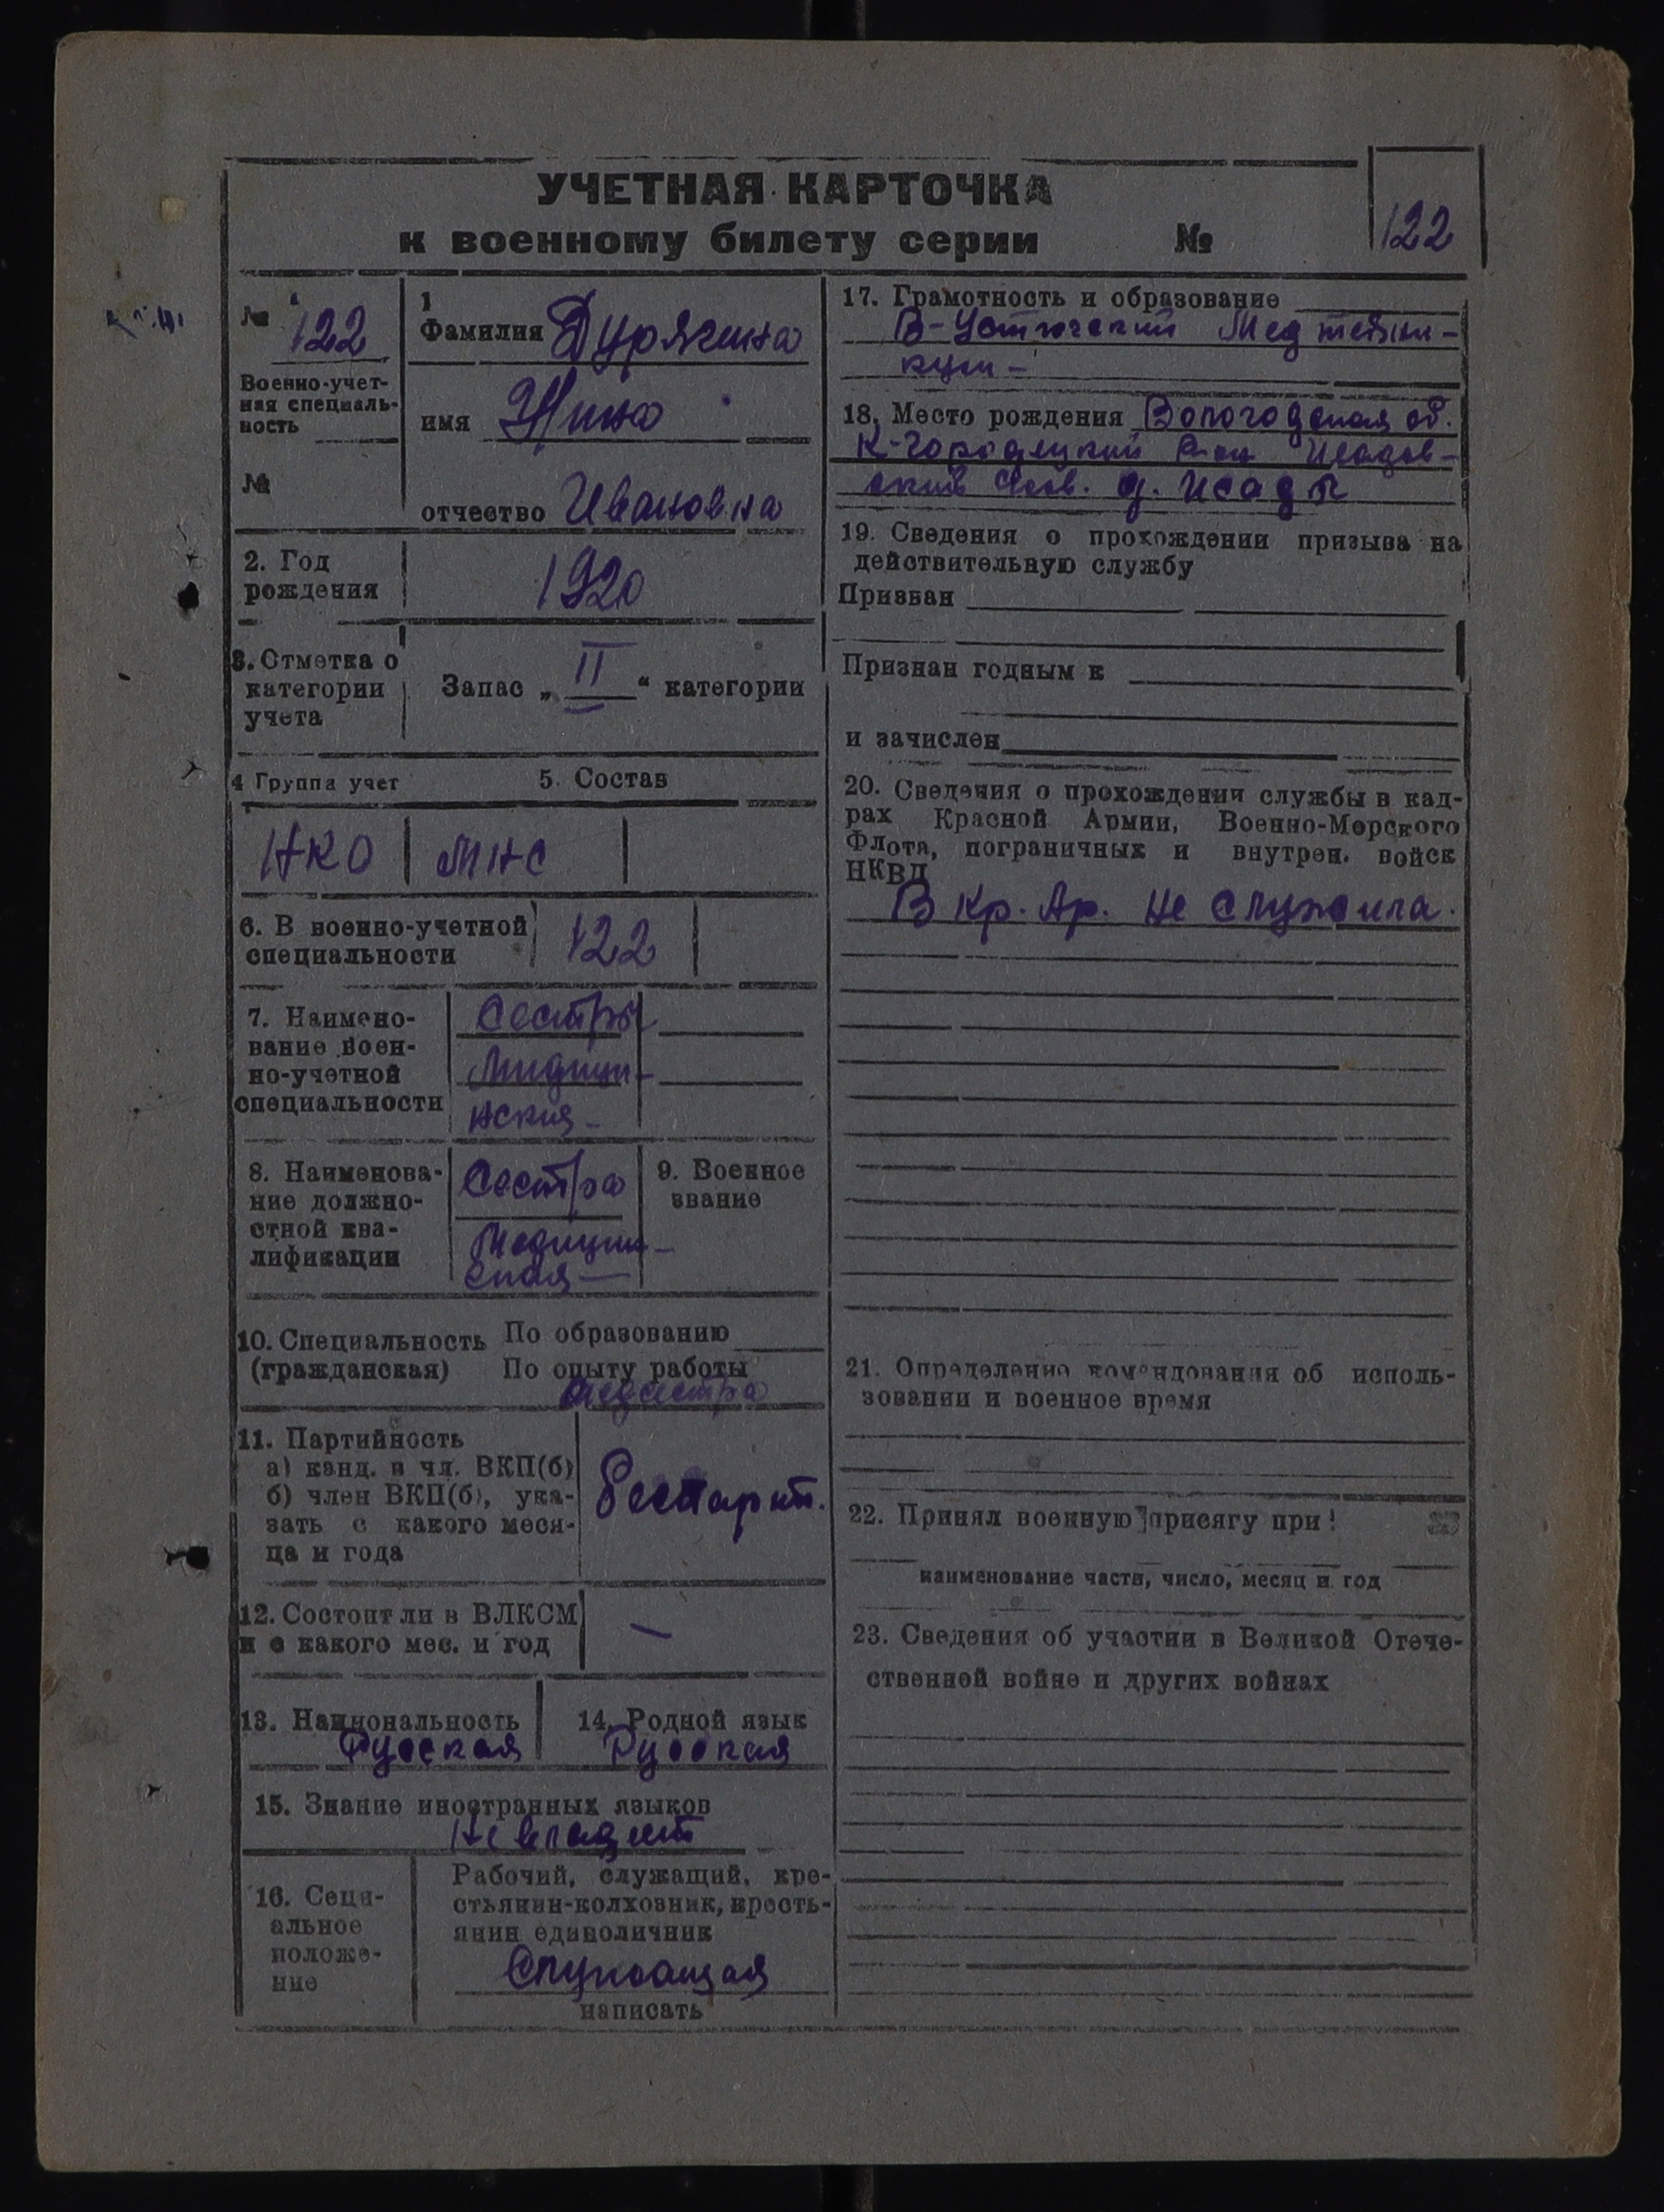 УЧЕТНАЯ КАРТОЧКА
к военному билету серии №
122
№ 122
Военно-учет-
ная специаль-
ность
№
1
Фамилия Дурягина
имя Нина
отчество Ивановна
2. Год
рождения
1920
3. Отметка о
категории
учета
Запас „ II “ категории
4 Группа учет
5. Состав
НКО
МНС
6. В военно-учетной
специальности
122
7. Наимено-
вание воен-
но-учетной
специальности
Сестры
Мидици-
нския-
8. Наименова-
ние должно-
стной ква-
лификации
Сестра
Медицин-
ская-
9. Военное
звание
10. Специальность По образованию
(гражданская) По опыту работы
медсестра
11. Партийность
а) канд. в чл. ВКП(б)
б) член ВКП(б), ука-
зать с какого меся-
ца и года
Беспарт.
12. Состоит ли в ВЛКСМ
и с какого мес. и год
—
13. Национальность
Русская
14. Родной язык
Русская
15. Знание иностранных языков
Не владеет
16. Соци-
альное
положе-
ние
Рабочий, служащий, кре-
стьянин-колхозник, кресть-
янин единоличник
Служащая
написать
17. Грамотность и образование
В-Устюгский Мед техни-
кум-
18. Место рождения Вологодская об.
К-Городецкий Р-он Исадов-
ский с/сов. д. Исады
19. Сведения о прохождении призыва на
действительную службу
Призван
Признан годным к
и зачислен
20. Сведения о прохождении службы в кад-
рах Красной Армии, Военно-Морского
Флота, пограничных и внутрен. войск
НКВД
В Кр. Ар. не служила.
21. Определение командования об исполь-
зовании и военное время
22. Принял военную присягу при:
наименование части, число, месяц и год
23. Сведения об участии в Великой Отече-
ственней войне и других войнах